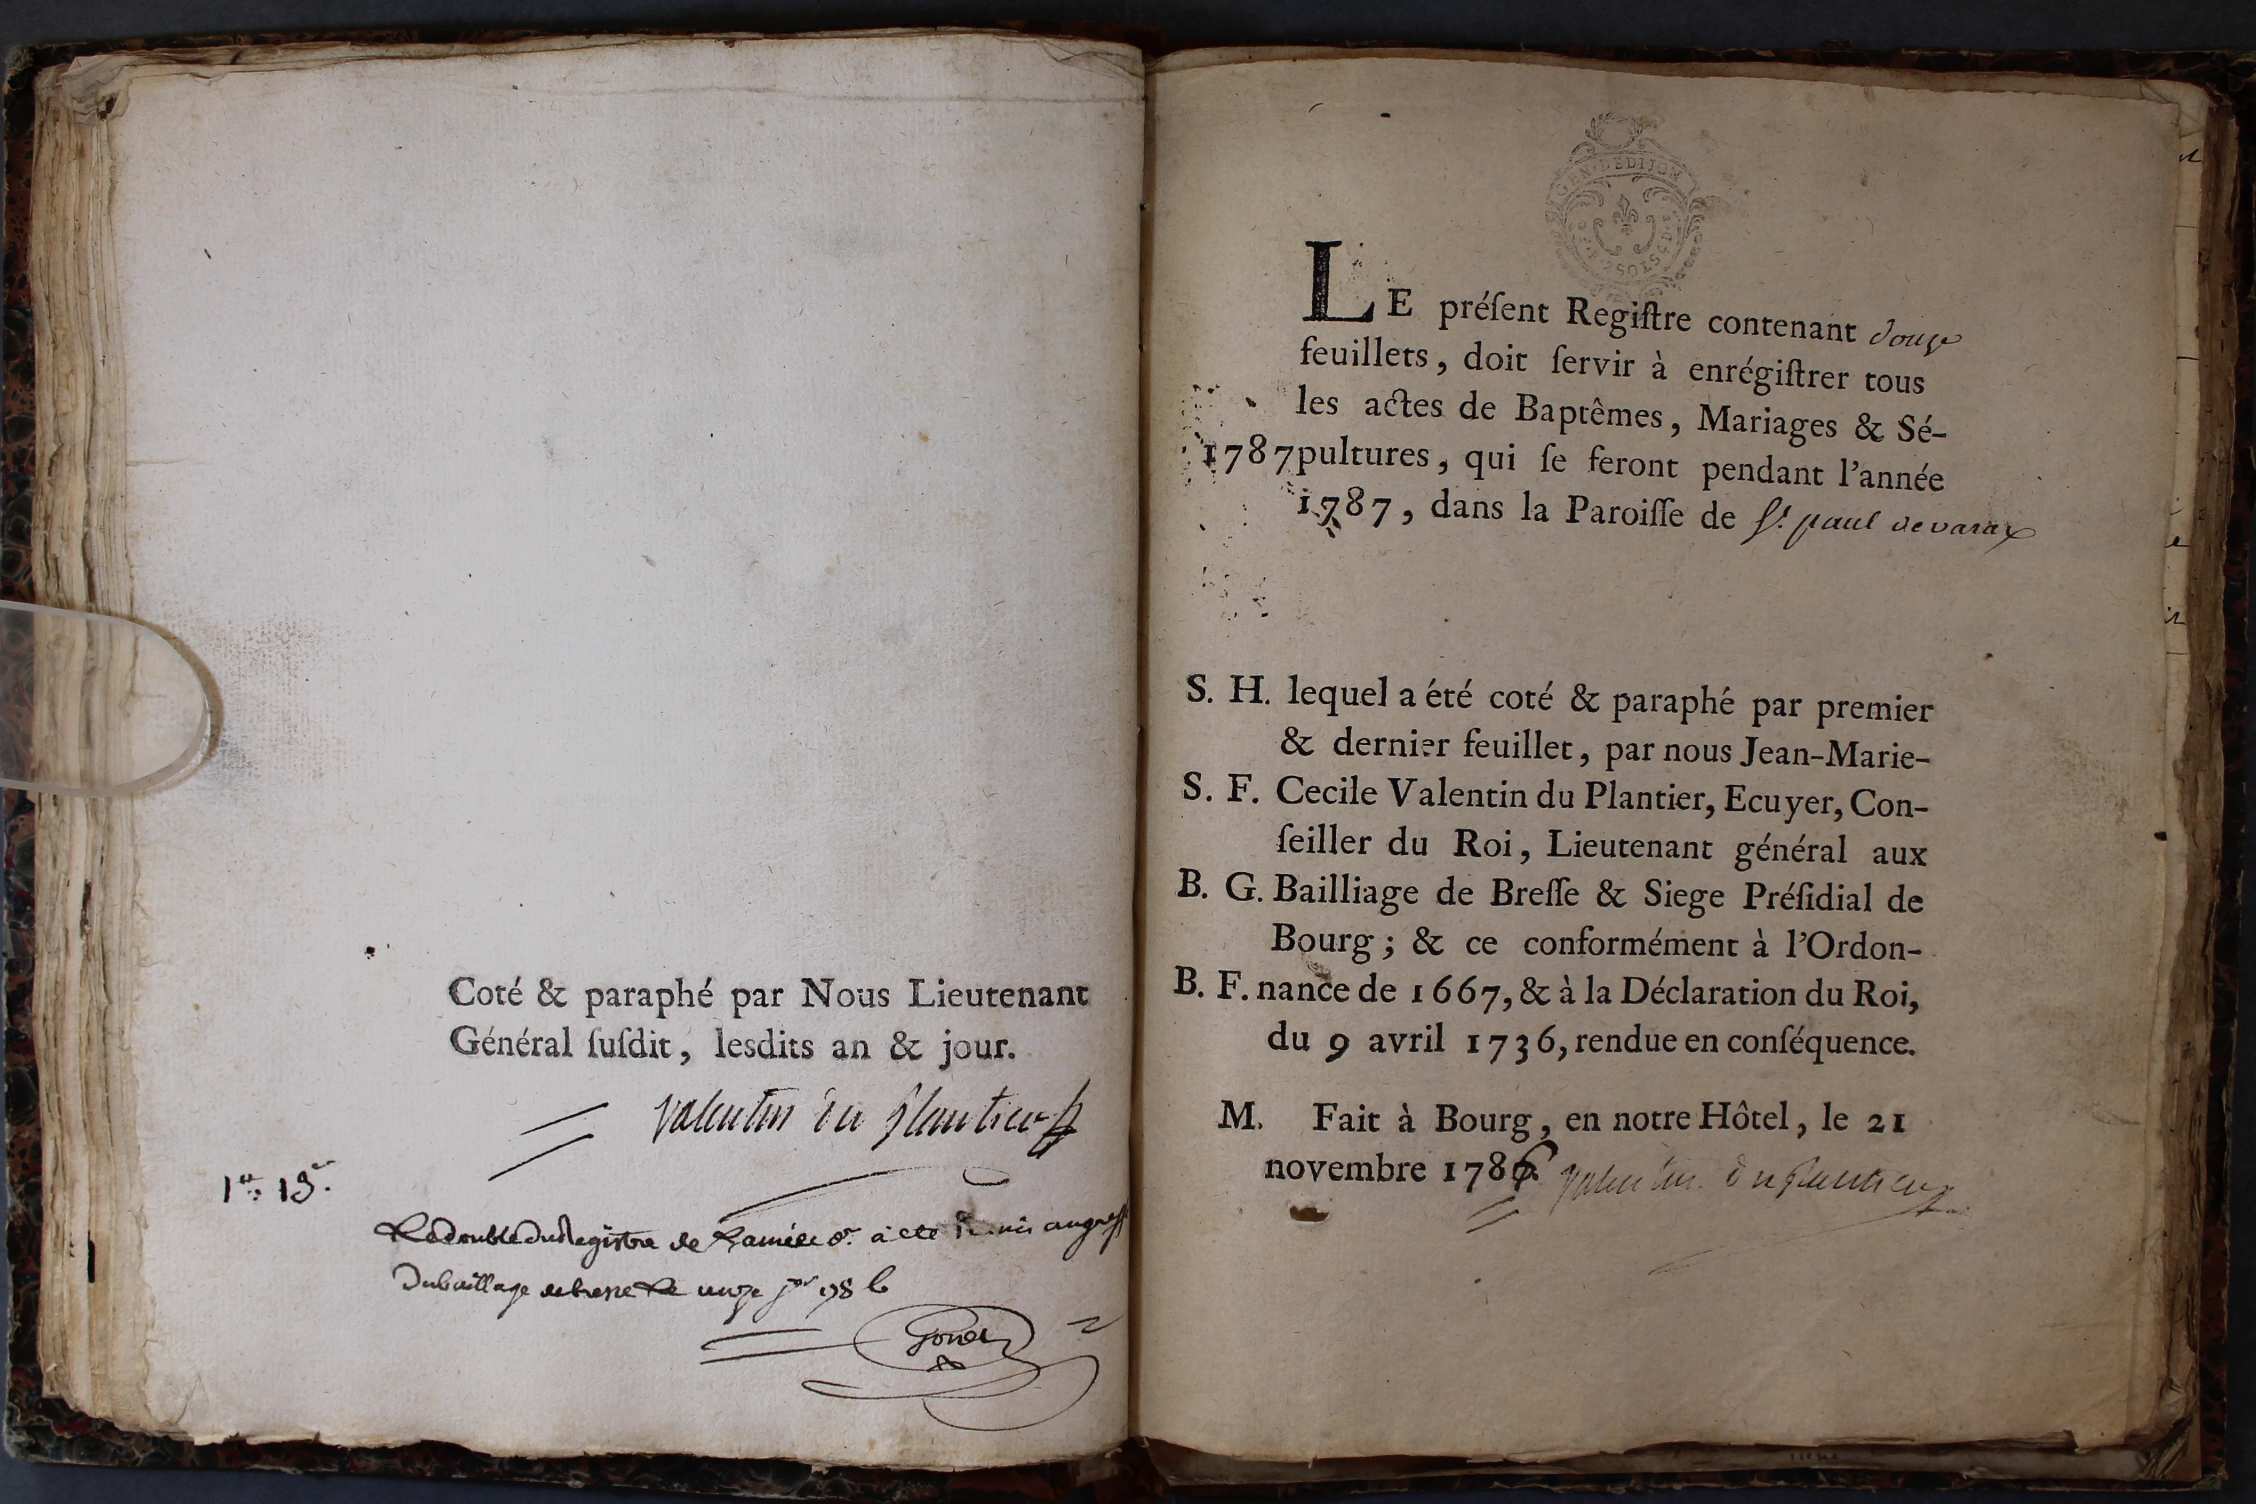 Coté & paraphé par Nous Lieutenant
Général ſuſdit, lesdits an & jour.
valentin du plantier
1.re 19.e
Le double du Registre de
du baillage de bresse le onze j.er 178
GEN. DE DIJON
LE préſent Regiſtre contenant douze
feuillets, doit ſervir à enrégiſtrer tous
les actes de Baptêmes, Mariages & Sé-
1787 pultures, qui ſe feront pendant l'année
1787, dans la Paroiſſe de S.t paul de varax
S. H. lequel a été coté & paraphé par premier
& dernier feuillet, par nous Jean-Marie-
S. F. Cecile Valentin du Plantier, Ecuyer, Con-
ſeiller du Roi, Lieutenant général aux
B. G. Bailliage de Breſſe & Siege Préſidial de
Bourg ; & ce conformément à l'Ordon-
B. F. nance de 1667, & à la Déclaration du Roi,
du 9 avril 1736, rendue en conſéquence.
M. Fait à Bourg, en notre Hôtel, le 21
novembre 1786. valentin du plantier